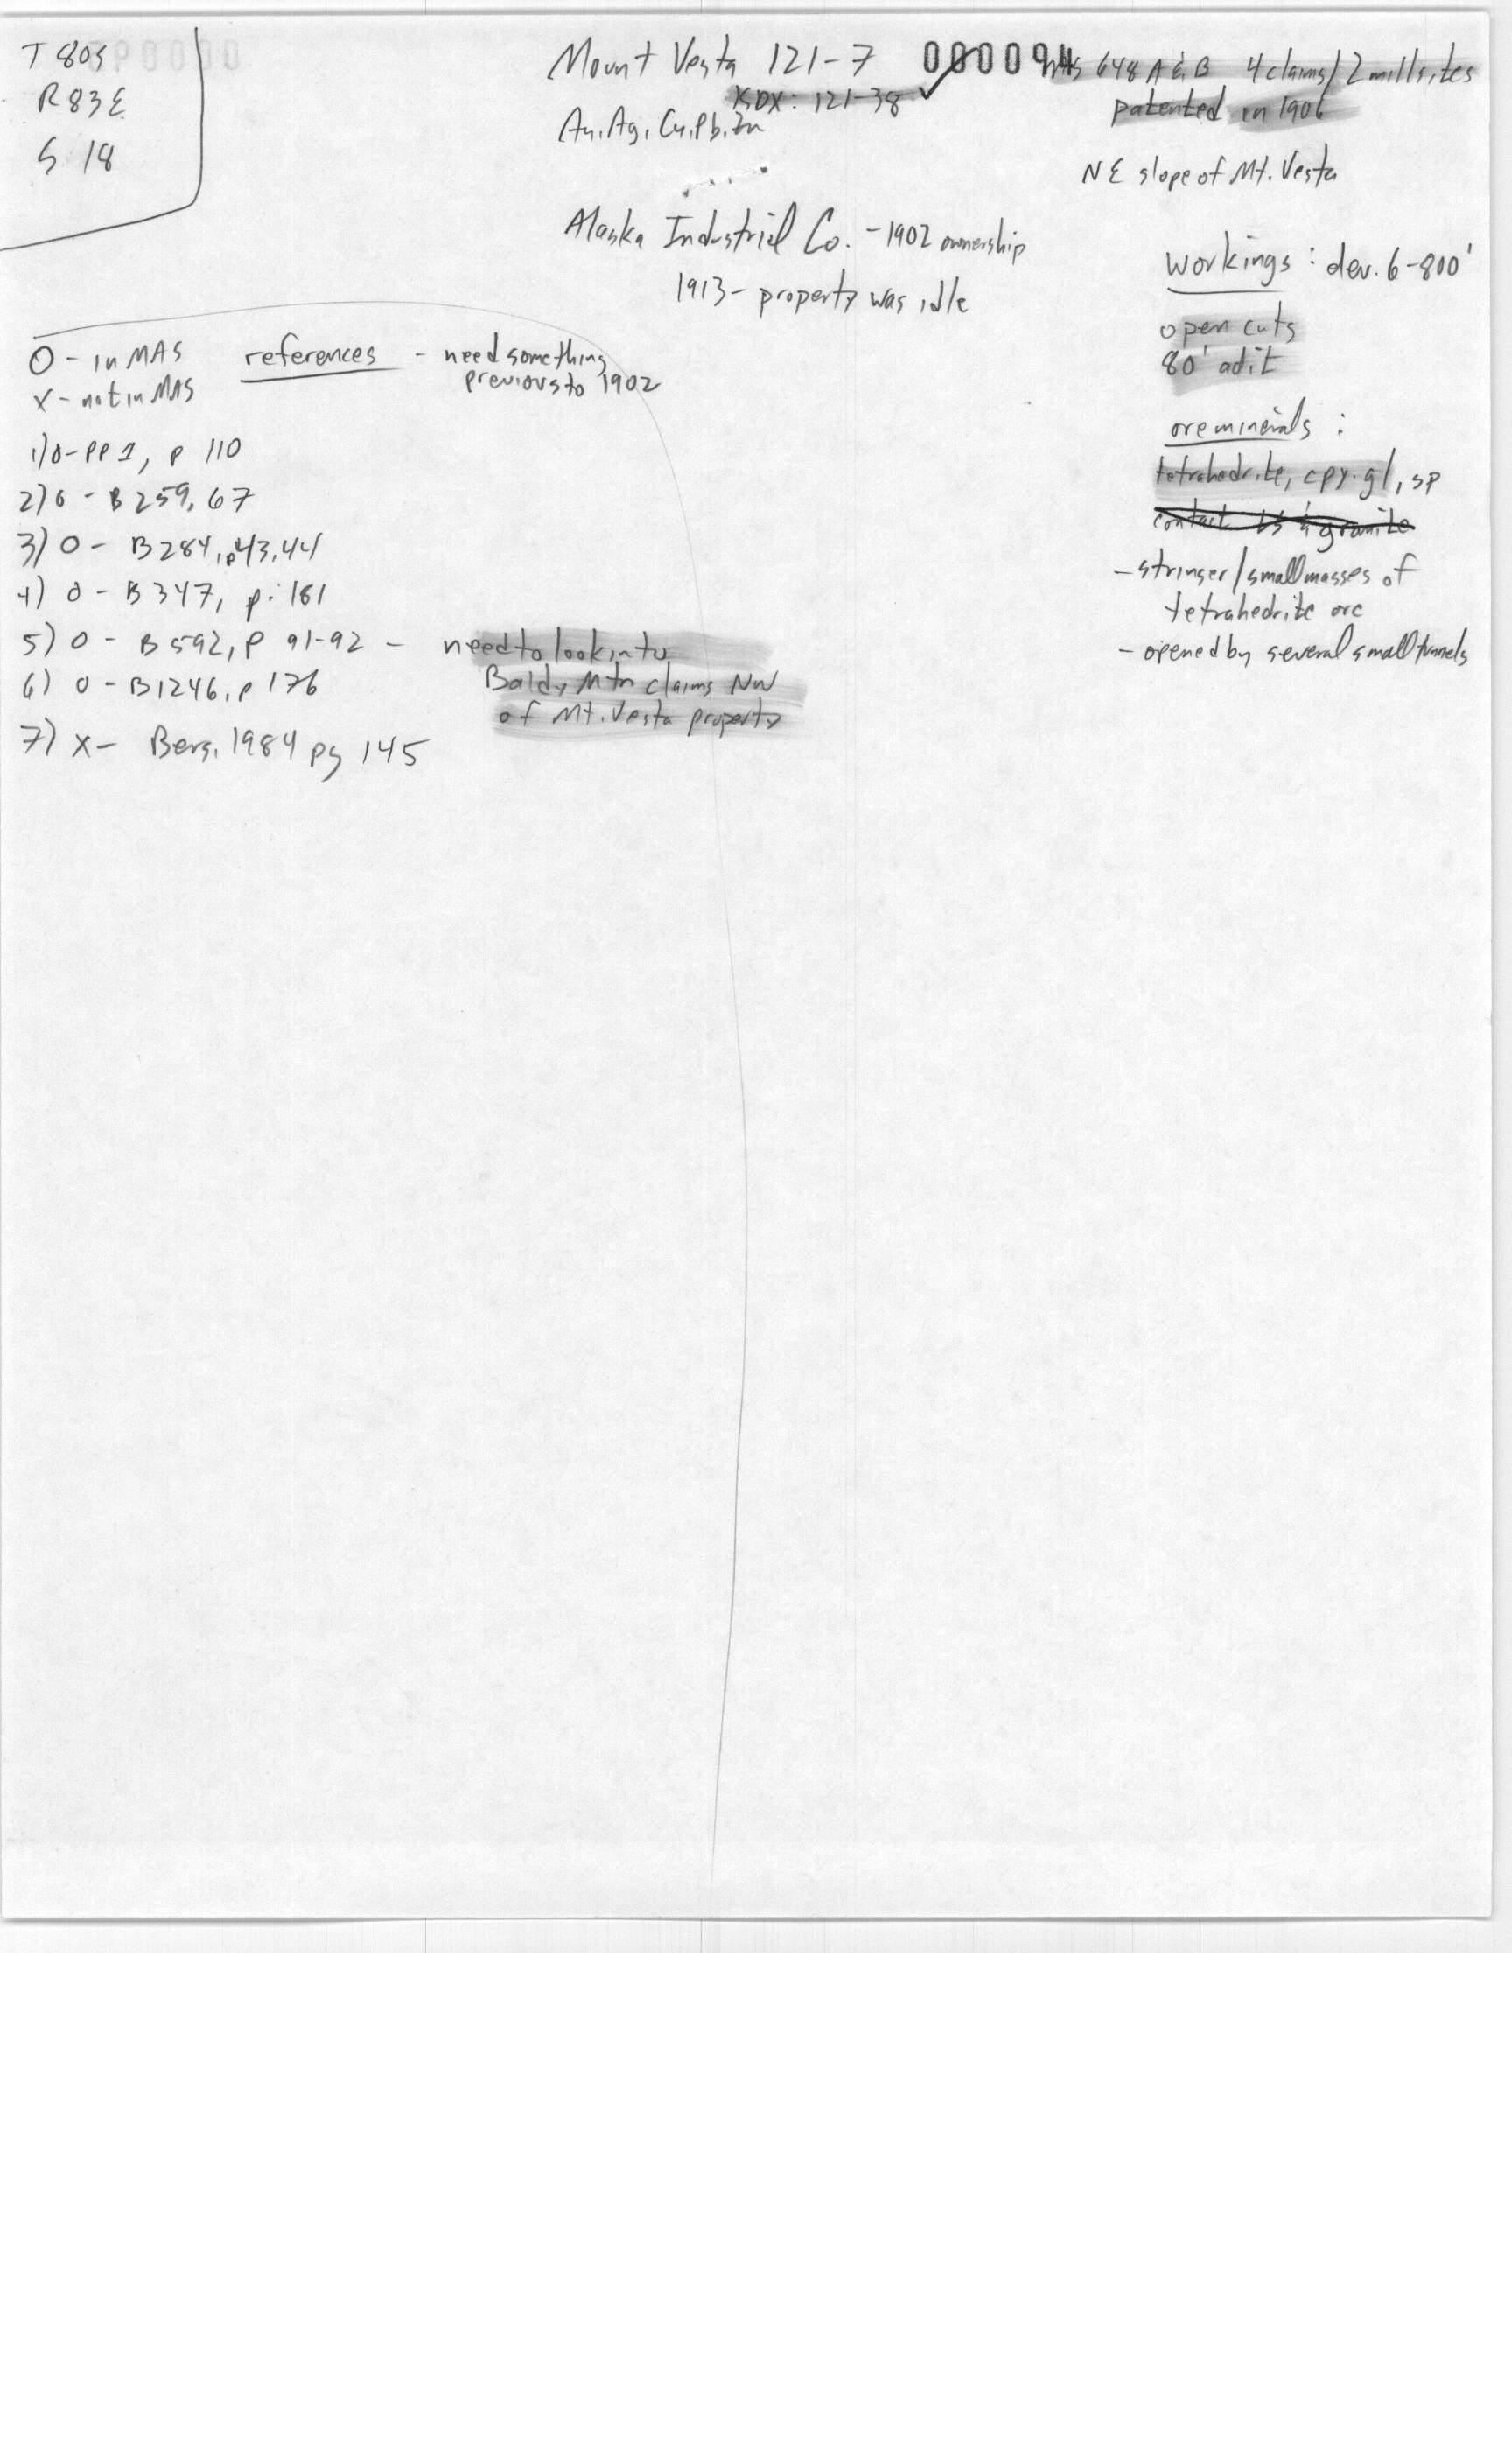 T 80S
R83E
S 18
Mount Vesta 121-7
000094
KDX: 121-38 ✓
Au, Ag, Cu, Pb, Zn
MS 648 A & B 4 claims/2 millsites
patented in 1906
NE slope of Mt. Vesta
Alaska Industrial Co. - 1902 ownership
1913 - property was idle
workings : elev. 6-800'
open cuts
80' adit
ore minerals :
tetrahedrite, cpy. gl, sp
- stringer/small masses of
tetrahedrite ore
- opened by several small tunnels
O - in MAS
X - not in MAS
references - need something
previous to 1902
1) O - PP 1, p 110
2) O - B 259, 67
3) O - B 284, p43,44
4) O - B 347, p. 161
5) O - B 592, P 91-92 - need to look into
Baldy Mtn claims NW
of Mt. Vesta property
6) O - B1246, p 176
7) X - Berg, 1984 pg 145